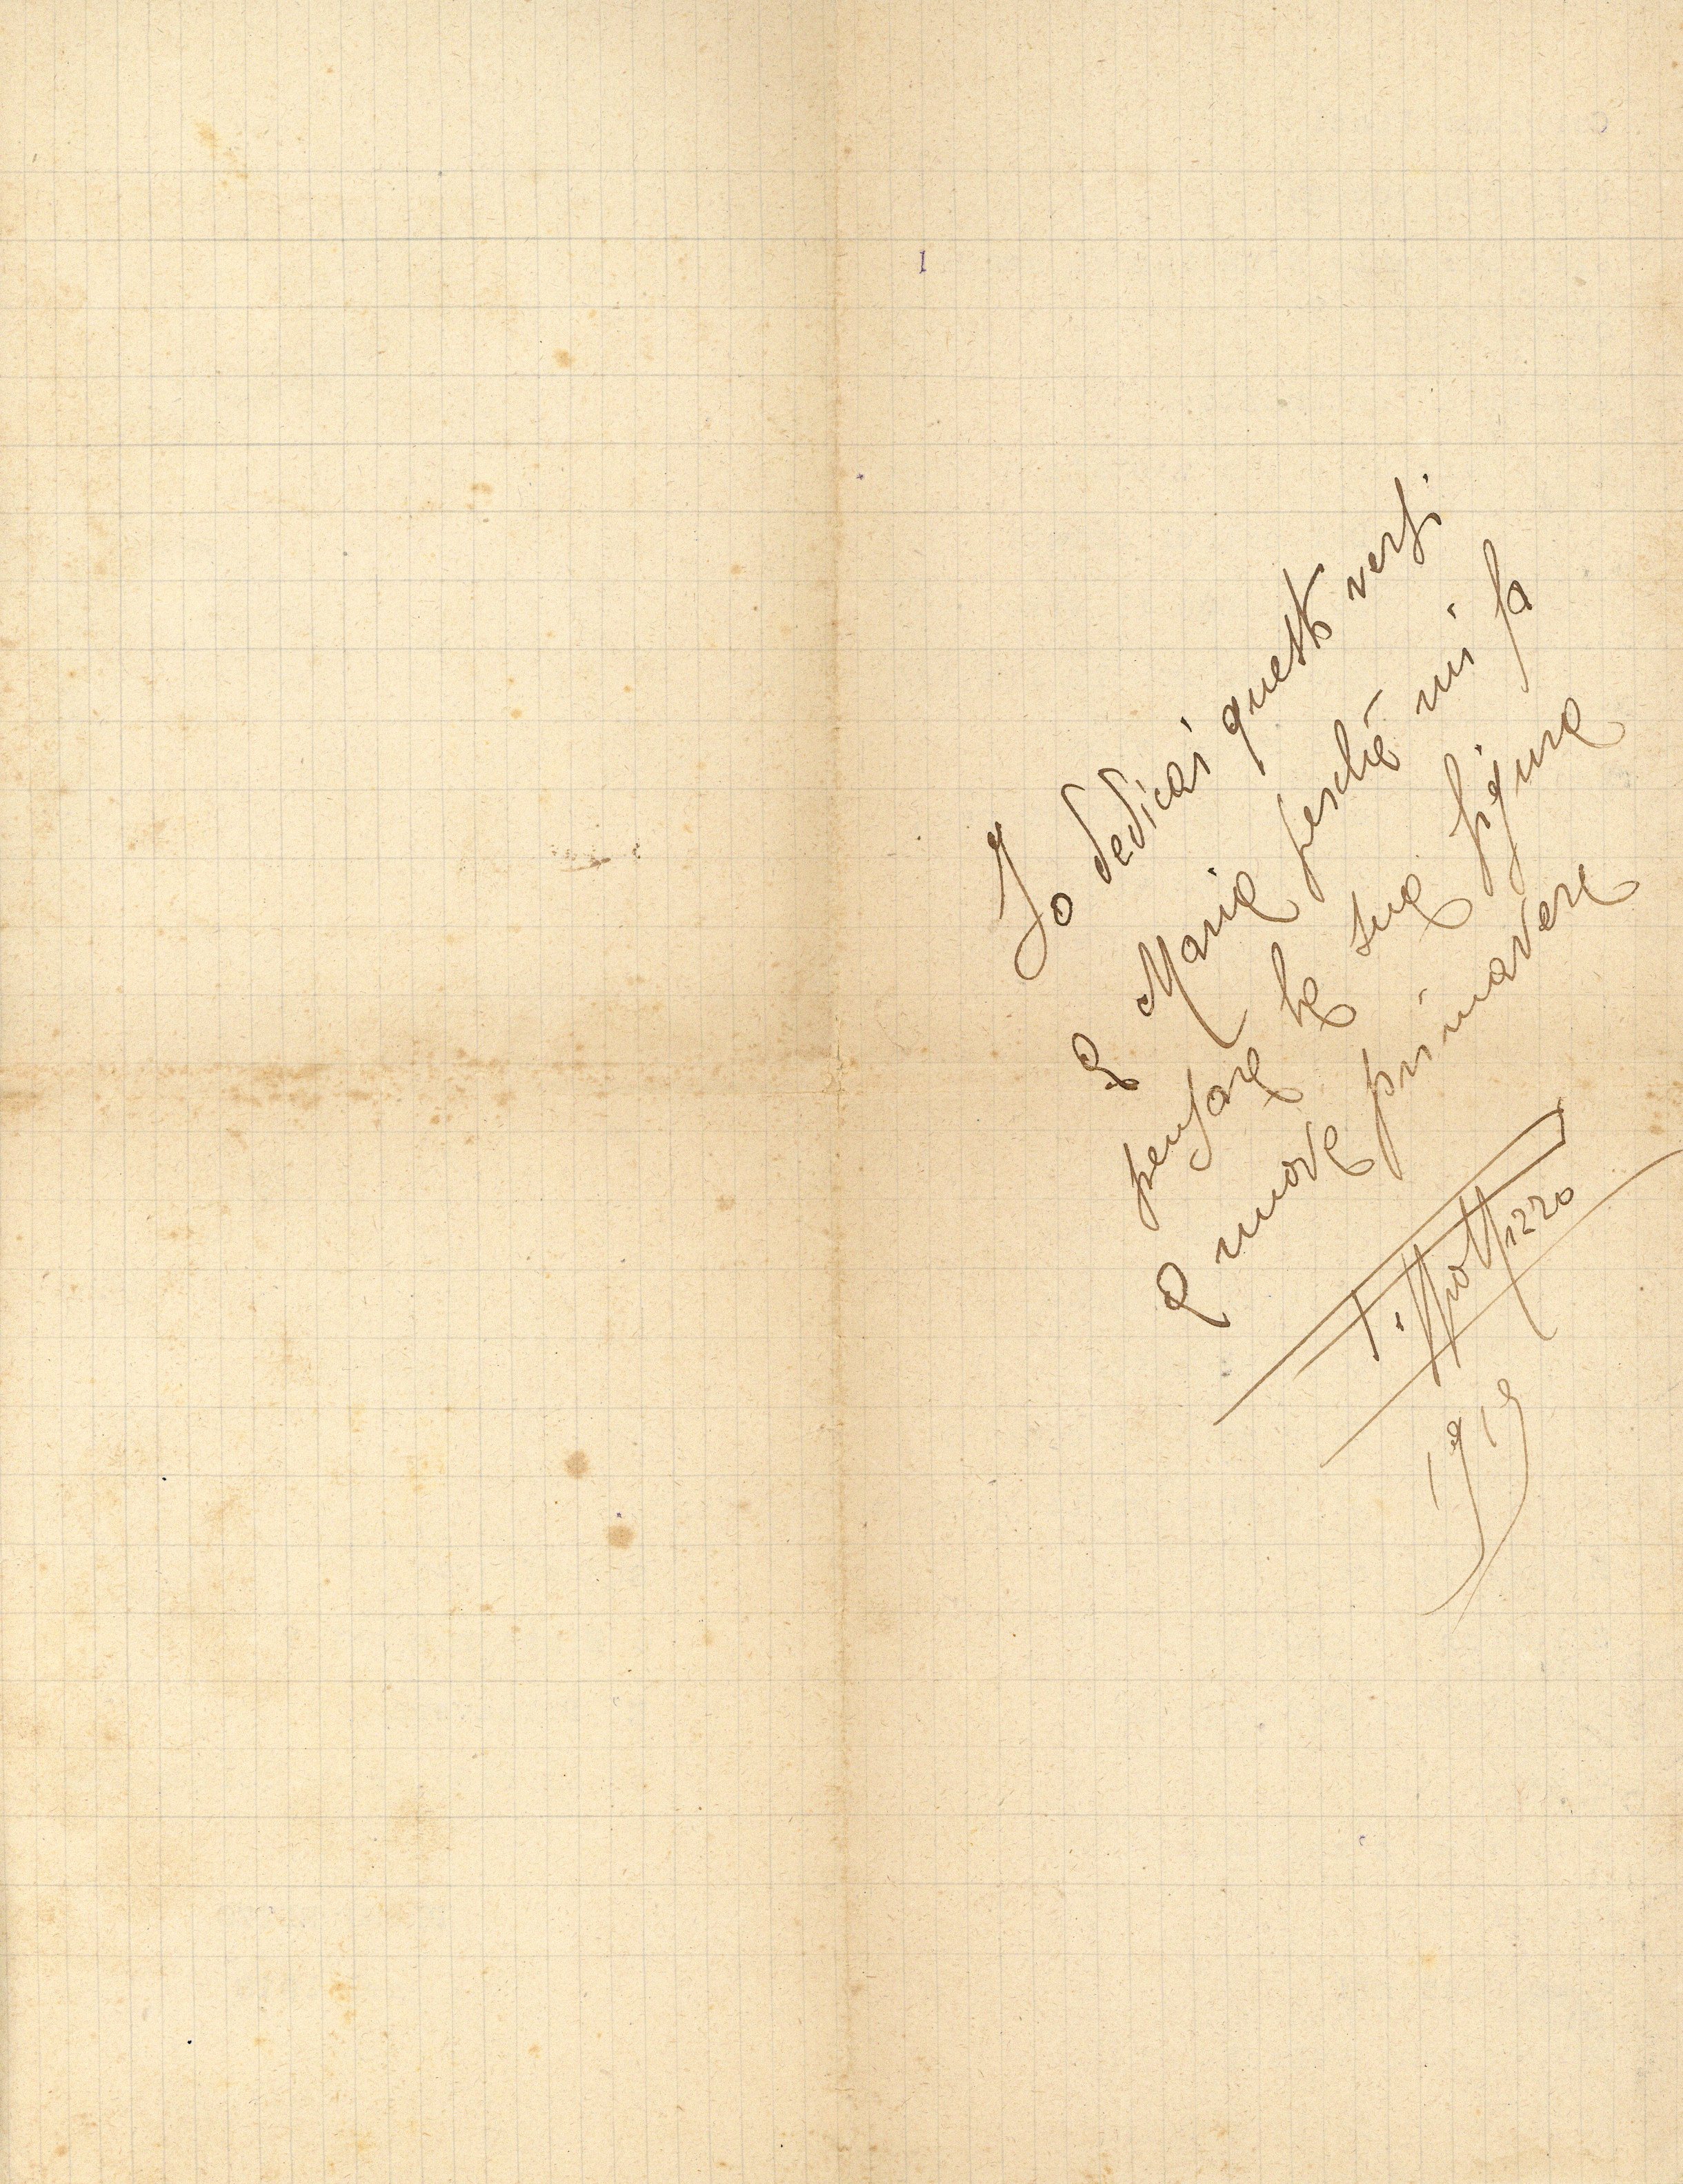 Io dedicai questi versi
a Maria perchè mi fa
pensare la sua figura
a nuova primavera
1919